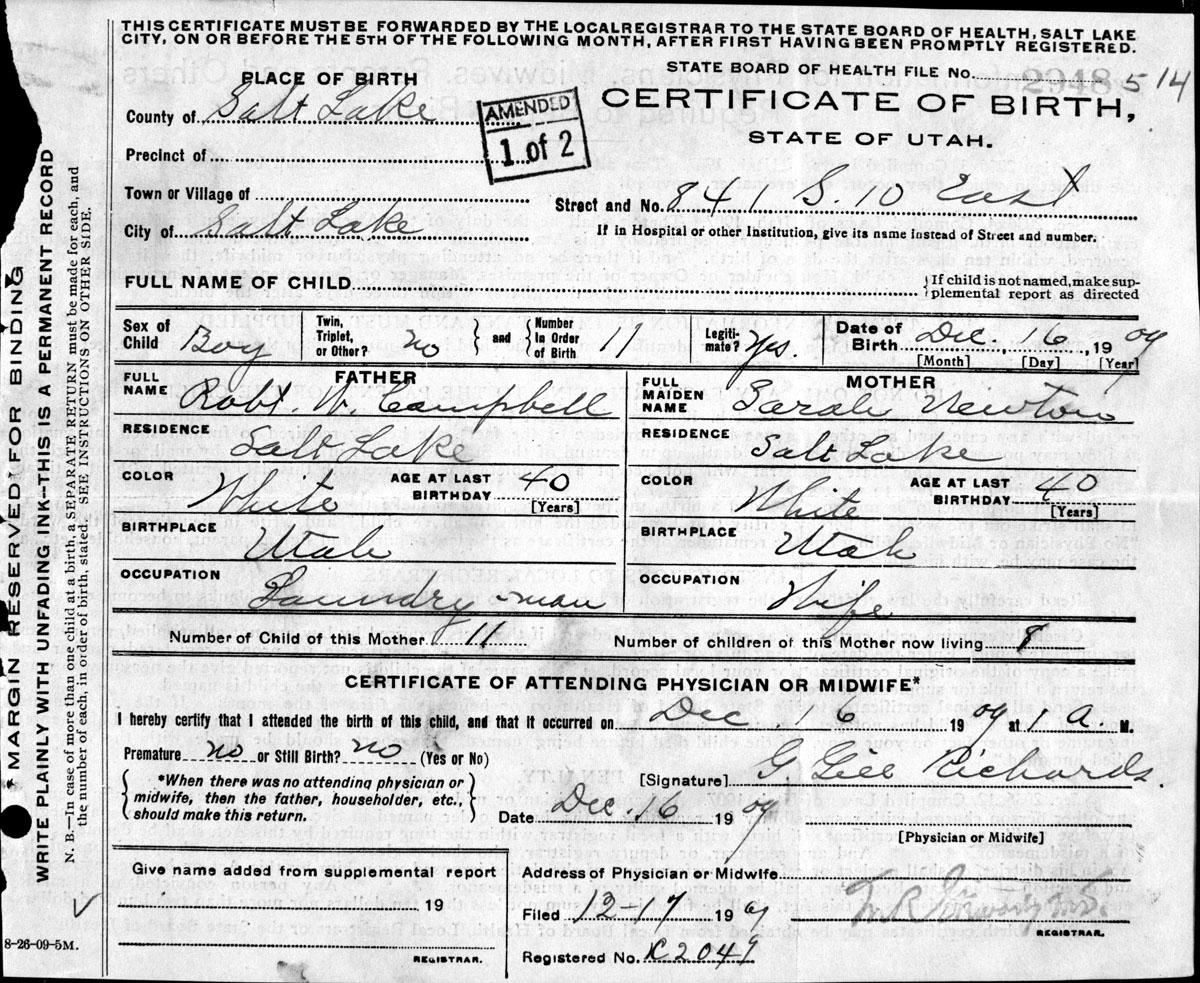 THIS CERTIFICATE MUST BE FORWARDED BY THE LOCAL REGISTRAR TO THE STATE BOARD OF HEALTH, SALT LAKE
CITY, ON OR BEFORE THE 5TH OF THE FOLLOWING MONTH, AFTER FIRST HAVING BEEN PROMPTLY REGISTERED.
STATE BOARD OF HEALTH FILE No. 2948 514
PLACE OF BIRTH
County of Salt Lake
AMENDED
1 of 2
CERTIFICATE OF BIRTH,
STATE OF UTAH.
Precinct of
Town or Village of
Street and No. 841 S. 10 East
City of Salt Lake
If in Hospital or other Institution, give its name instead of Street and number.
FULL NAME OF CHILD
{If child is not named, make sup-
plemental report as directed
Sex of Child Boy
Twin, Triplet, or Other? no
and
{Number In Order of Birth 11
Legiti-mate? yes.
Date of Birth Dec. 16, 1909
[Month] [Day] [Year]
FATHER
FULL NAME Robt. W. Campbell
RESIDENCE Salt Lake
COLOR White
AGE AT LAST BIRTHDAY 40
[Years]
BIRTHPLACE Utah
OCCUPATION Laundry-man
MOTHER
FULL MAIDEN NAME Sarah Newton
RESIDENCE Salt Lake
COLOR White
AGE AT LAST BIRTHDAY 40
[Years]
BIRTHPLACE Utah
OCCUPATION Wife
Number of Child of this Mother 11
Number of children of this Mother now living 8
CERTIFICATE OF ATTENDING PHYSICIAN OR MIDWIFE*
I hereby certify that I attended the birth of this child, and that it occurred on Dec 16 1909 at 1 a. M.
Premature no or Still Birth? no (Yes or No)
{*When there was no attending physician or
midwife, then the father, householder, etc.,
should make this return.}
[Signature] G Gill Richards
Date Dec 16 1909
[Physician or Midwife]
Give name added from supplemental report
19
REGISTRAR.
Address of Physician or Midwife
Filed 12-17 1909
REGISTRAR.
Registered No. K2049
8-26-09-5M.
*MARGIN RESERVED FOR BINDING
WRITE PLAINLY WITH UNFADING INK-THIS IS A PERMANENT RECORD
N. B.—In case of more than one child at a birth, a SEPARATE RETURN must be made for each, and
the number of each, in order of birth, stated. SEE INSTRUCTIONS ON OTHER SIDE.